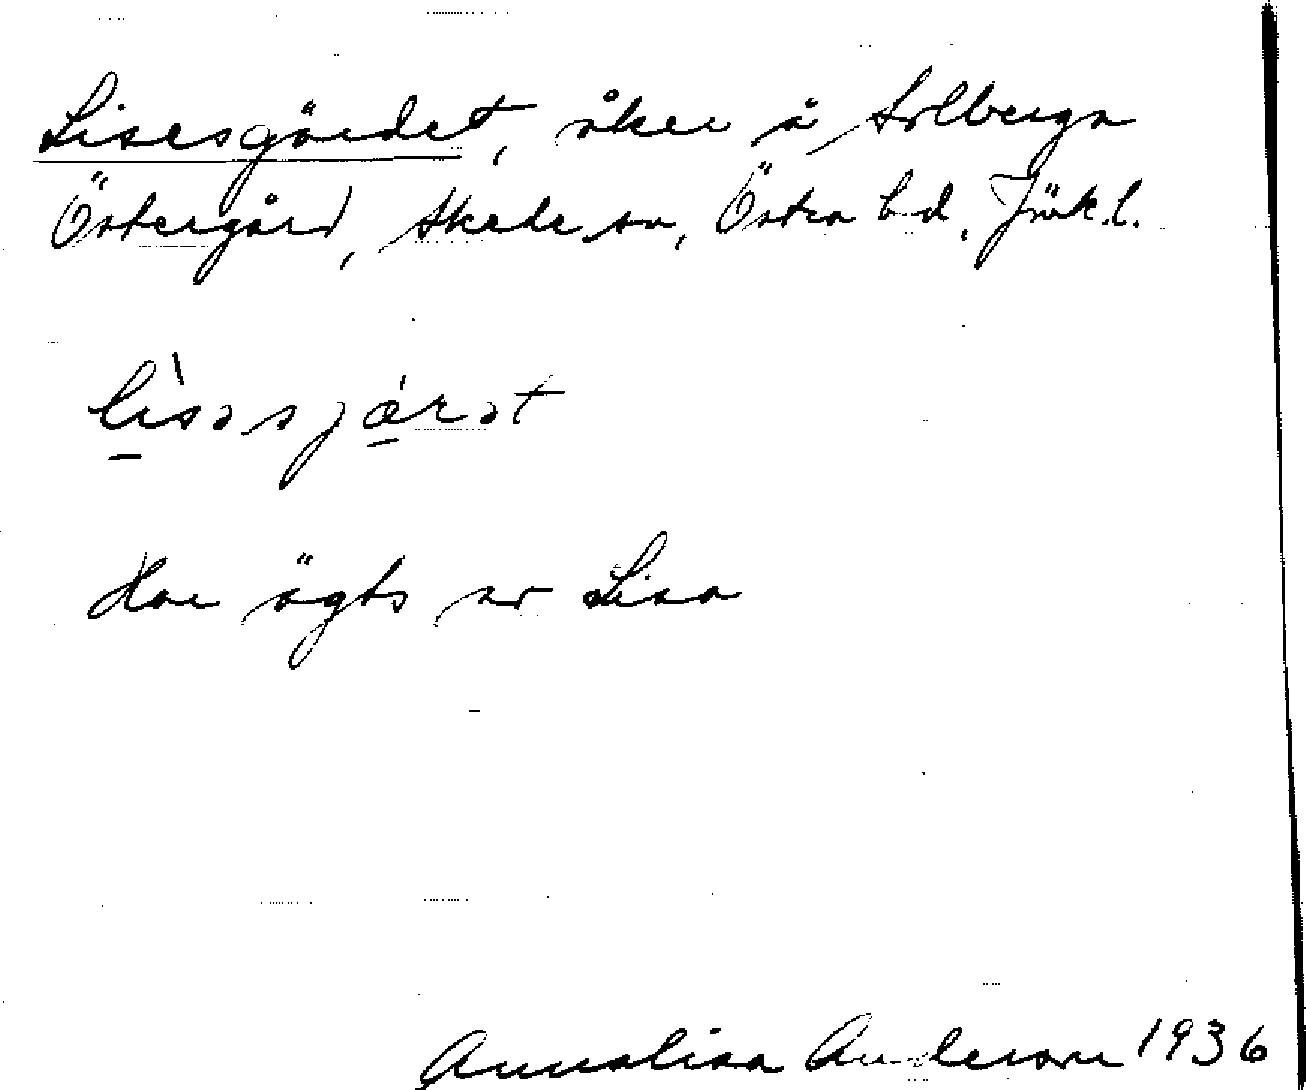 Lisesgärdet, åker å Solberga
Östergård, Skede sn, Östra hd, Jönk. l.
lìsəsjárət
Har ägts av Lisa
Annalisa Anderson 1936